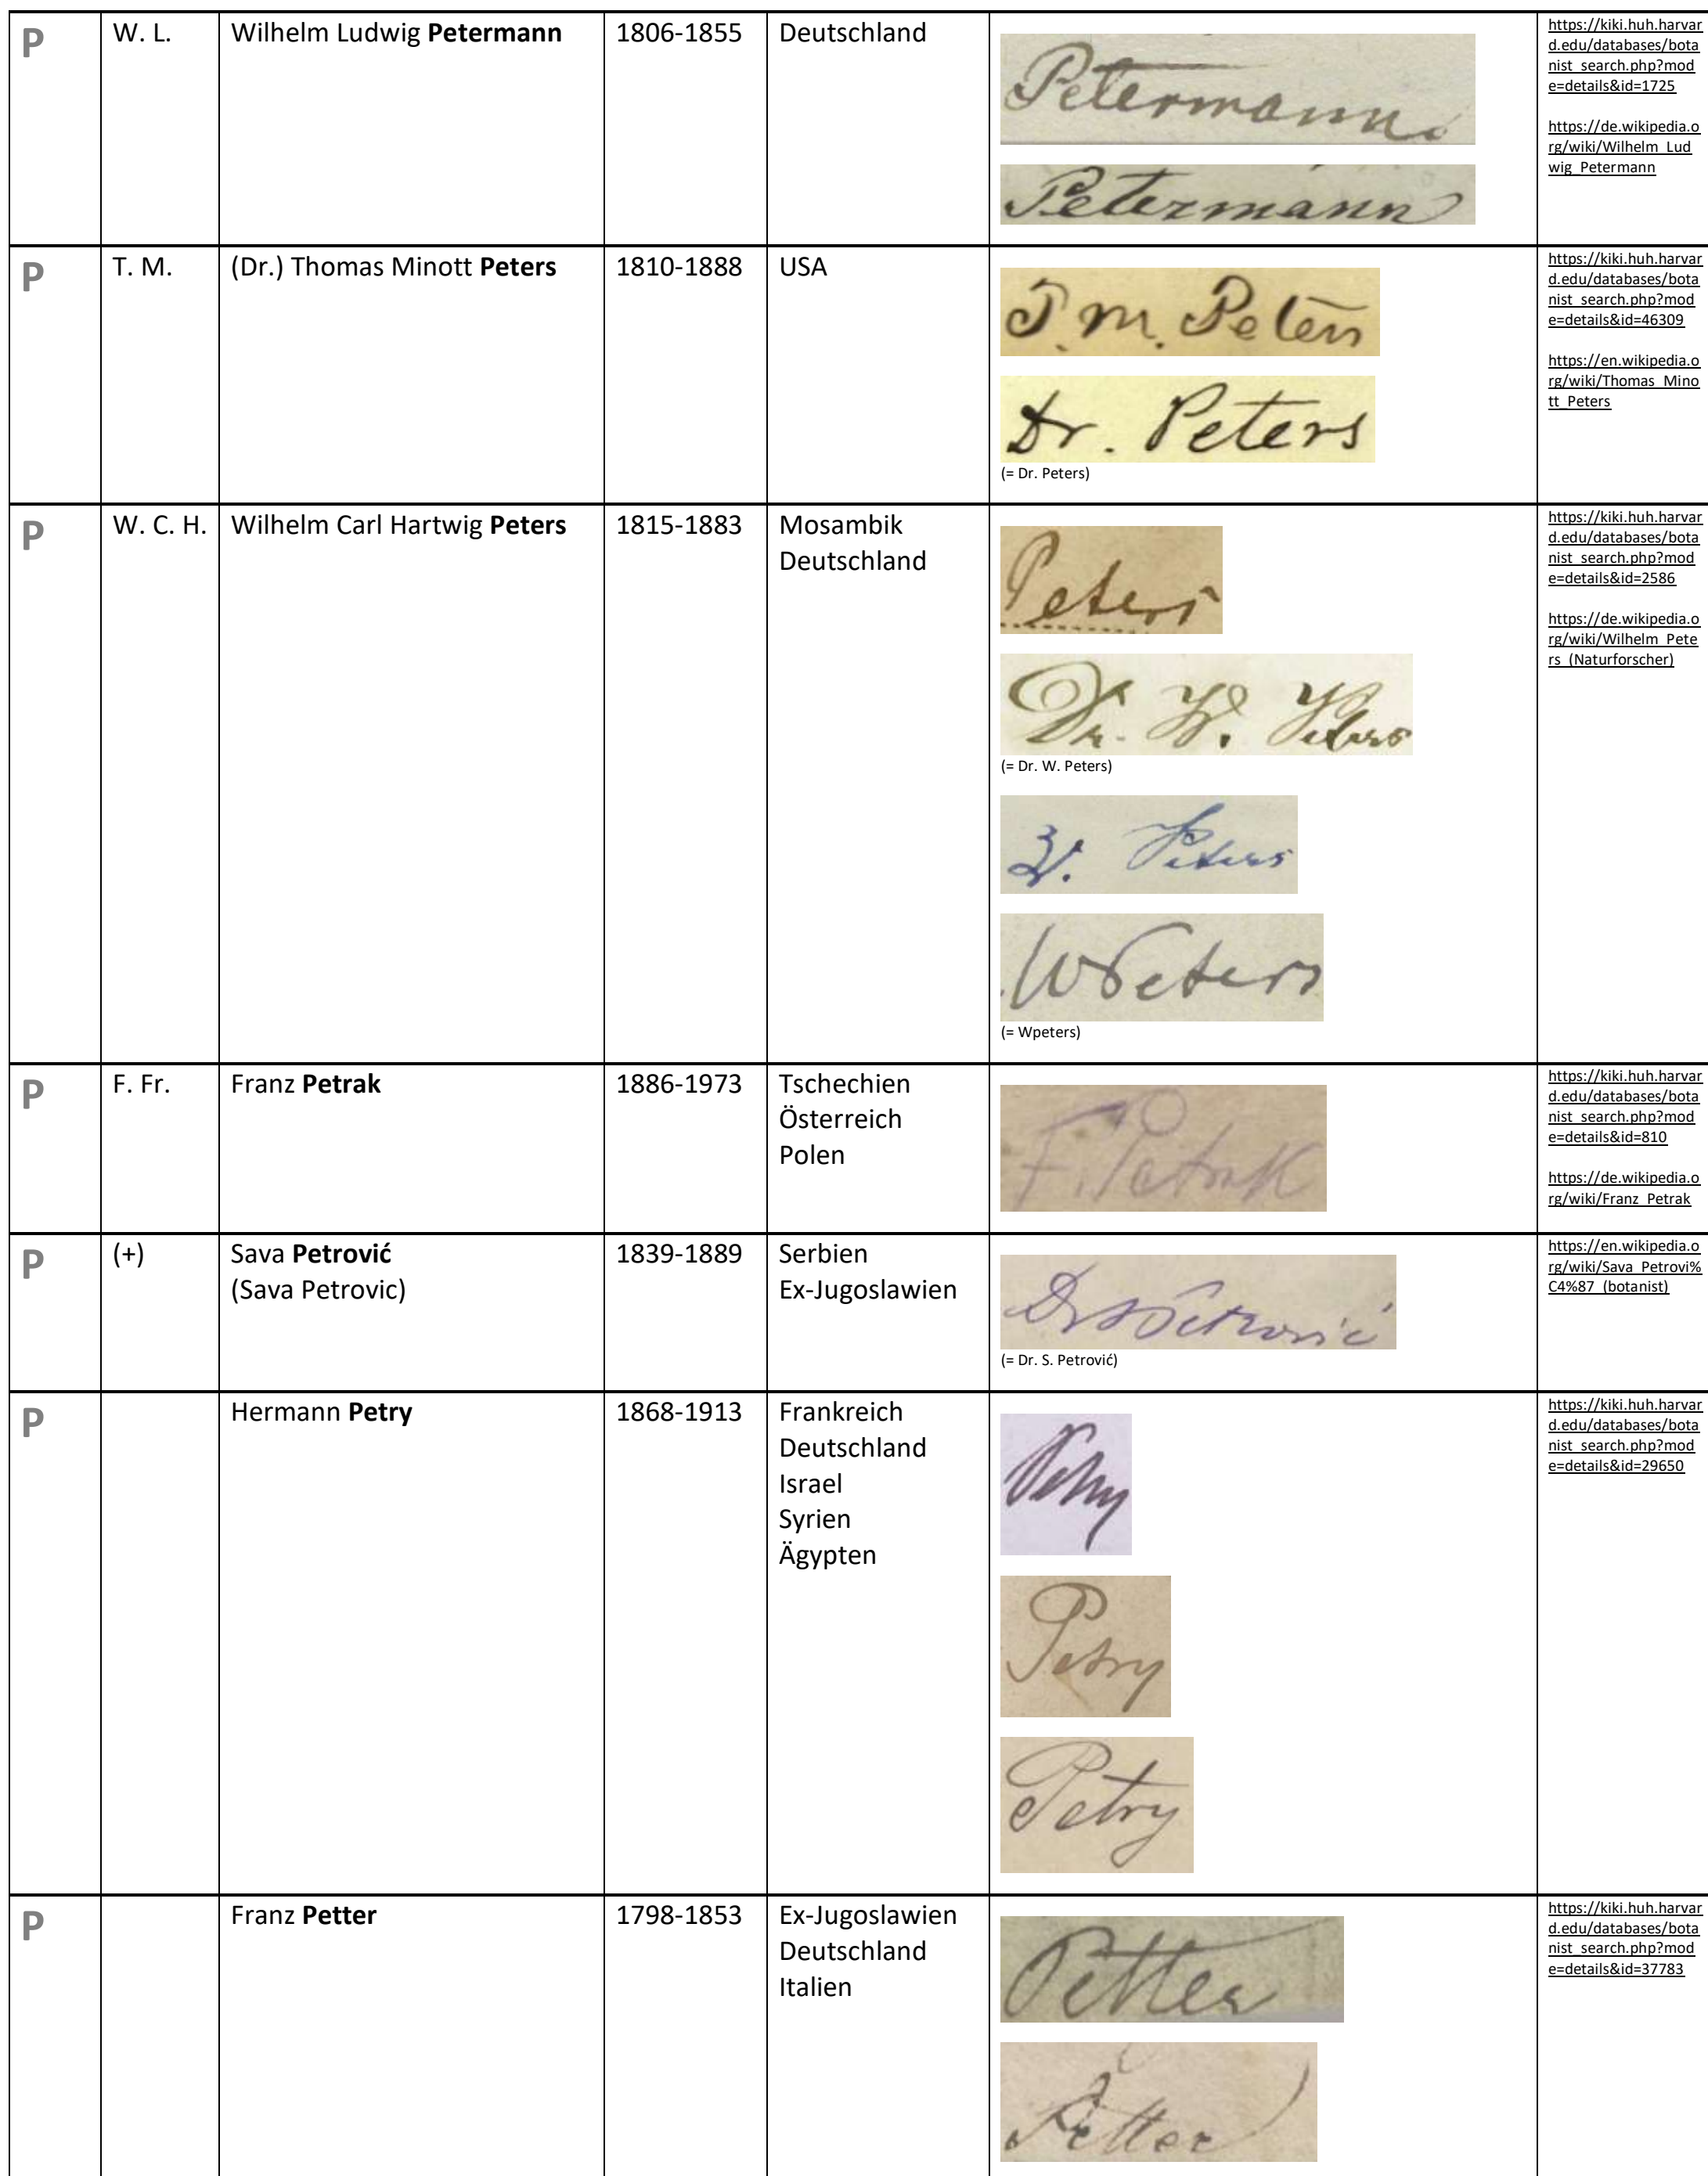 P W. L. Wilhelm Ludwig Petermann 1806-1855 Deutschland
Petermann.
Petermann
https://kiki.huh.harvar
d.edu/databases/bota
nist_search.php?mod
e=details&id=1725
https://de.wikipedia.o
rg/wiki/Wilhelm_Lud
wig_Petermann
P T. M. (Dr.) Thomas Minott Peters 1810-1888 USA
T. M. Peters
Dr. Peters
(= Dr. Peters)
https://kiki.huh.harvar
d.edu/databases/bota
nist_search.php?mod
e=details&id=46309
https://en.wikipedia.o
rg/wiki/Thomas_Mino
tt_Peters
P W. C. H. Wilhelm Carl Hartwig Peters 1815-1883 Mosambik
Deutschland
Peters
Dr. W. Peters
(= Dr. W. Peters)
W. Peters
WPeters
(= Wpeters)
https://kiki.huh.harvar
d.edu/databases/bota
nist_search.php?mod
e=details&id=2586
https://de.wikipedia.o
rg/wiki/Wilhelm_Pete
rs_(Naturforscher)
P F. Fr. Franz Petrak 1886-1973 Tschechien
Österreich
Polen
F. Petrak
https://kiki.huh.harvar
d.edu/databases/bota
nist_search.php?mod
e=details&id=810
https://de.wikipedia.o
rg/wiki/Franz_Petrak
P (+) Sava Petrović 1839-1889 Serbien
(Sava Petrovic) Ex-Jugoslawien
Dr S Petrović
(= Dr. S. Petrović)
https://en.wikipedia.o
rg/wiki/Sava_Petrovi%
C4%87_(botanist)
P Hermann Petry 1868-1913 Frankreich
Deutschland
Israel
Syrien
Ägypten
Petry
Petry
Petry
https://kiki.huh.harvar
d.edu/databases/bota
nist_search.php?mod
e=details&id=29650
P Franz Petter 1798-1853 Ex-Jugoslawien
Deutschland
Italien
Petter
Petter
https://kiki.huh.harvar
d.edu/databases/bota
nist_search.php?mod
e=details&id=37783